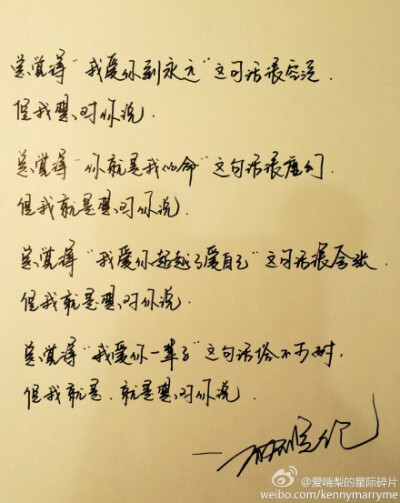 总觉得“我爱你到永远”这句话很空泛.
但我想对你说.
总觉得“你就是我的命”这句话很虚幻.
但我就是想对你说.
总觉得“我爱你超越了爱自己”这句话很夸张.
但我就是想对你说.
总觉得“我爱你一辈子”这句话俗不可耐.
但我就是.就是想对你说.
@爱啃梨的星际碎片
weibo.com/kennymarryme